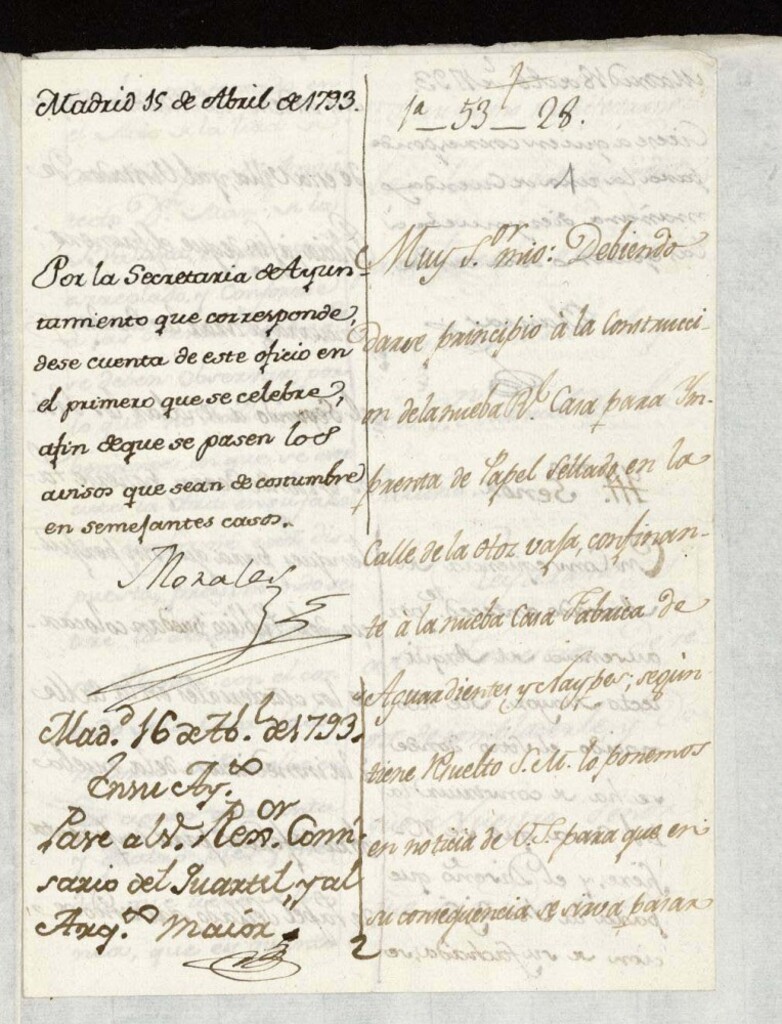 Madrid 15 de Abril de 1793.
Por la Secretaria de Ayun-
tamiento que corresponde,
dese cuenta de este oficio en
el primero que se celebre,
afin deque se pasen los
avisos que sean de costumbre
en semejantes casos.
Morales
Mad.d 16 de Ab.l de 1793.
En su Ay.to
Pase al S.or Rex.or Comi
sario del Quartel, y al
Arq.to maior
1a_53_28.
1
Muy S.or mio: Debiendo
darse principio á la Construcci-
on dela nueba R.l Casa para Ym-
prenta de Papel Sellado en la
Calle de la vaja, confinan-
te á la nueba Casa Fabrica de
Aguardientes y Naypes, según
tiene Rsuelto S. M. lo ponemos
en noticia de V.S. para que en
su consequencia se sirva pasar
2